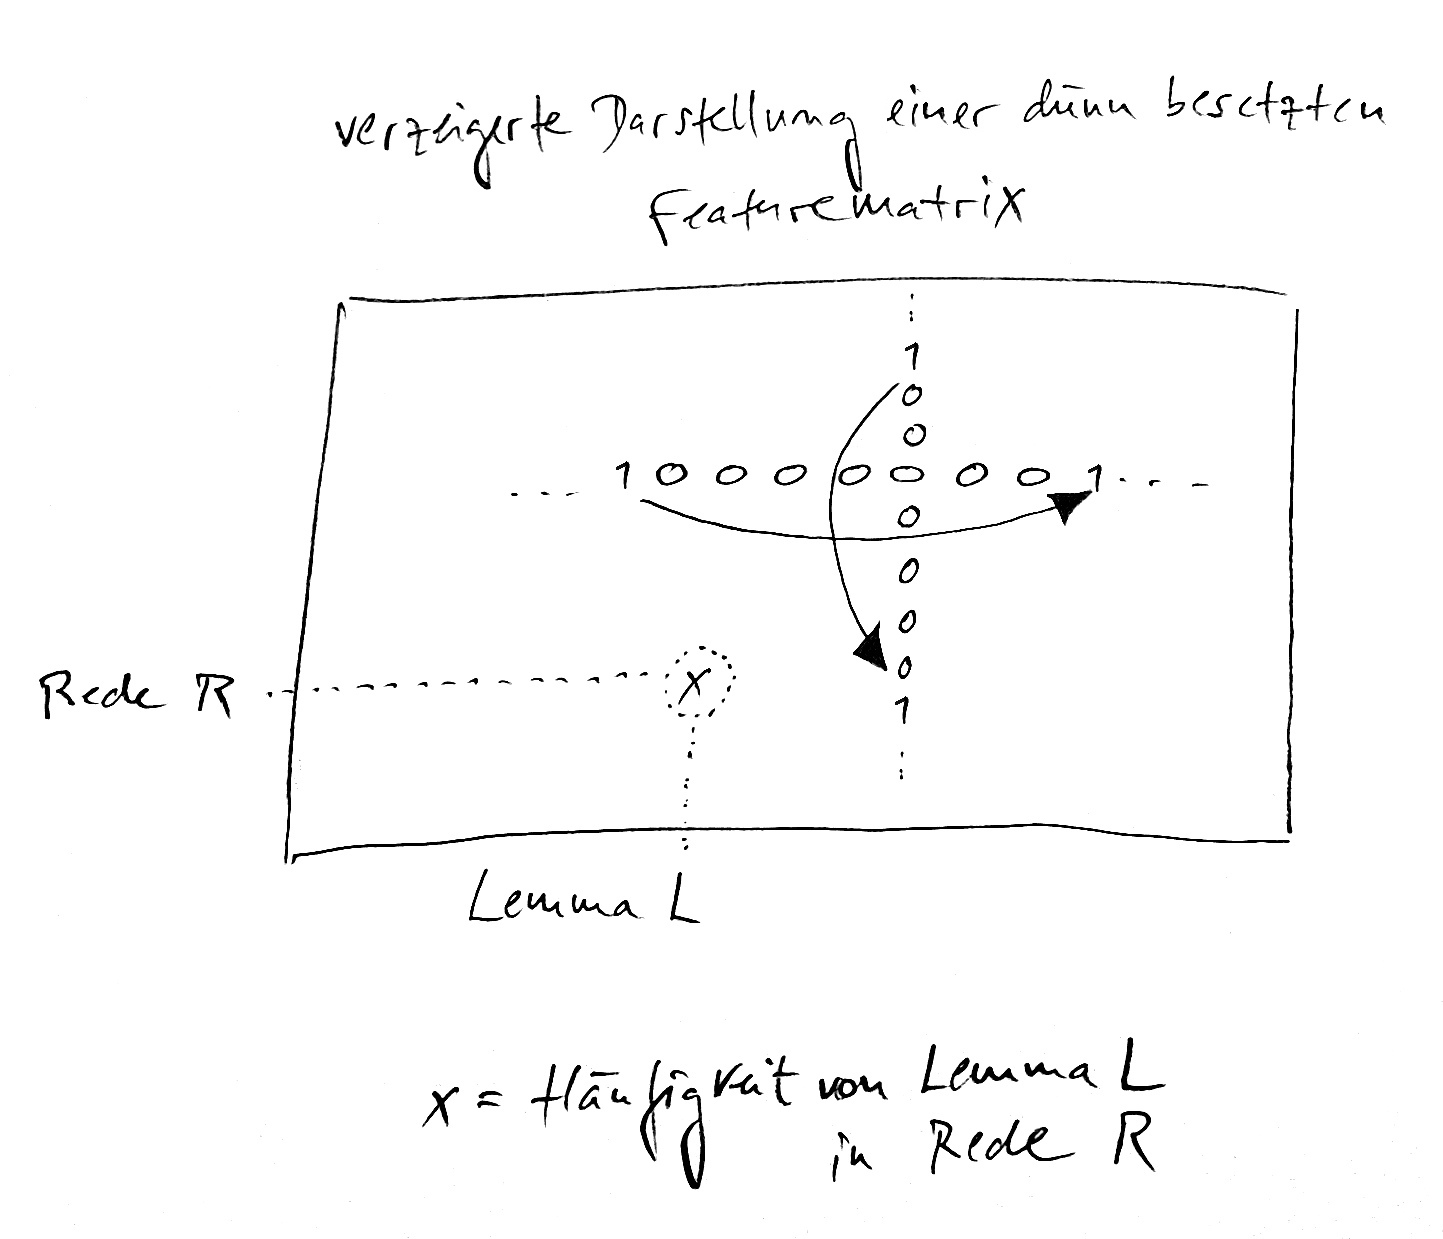 verzeigerte Darstellung einer dünn besetzten
Featurematrix
⋮
1
0
0
... 1 0 0 0 0 0 0 0 1 ...
0
0
0
0
1
⋮
Rede R
x
Lemma L
x = Häufigkeit von Lemma L
in Rede R